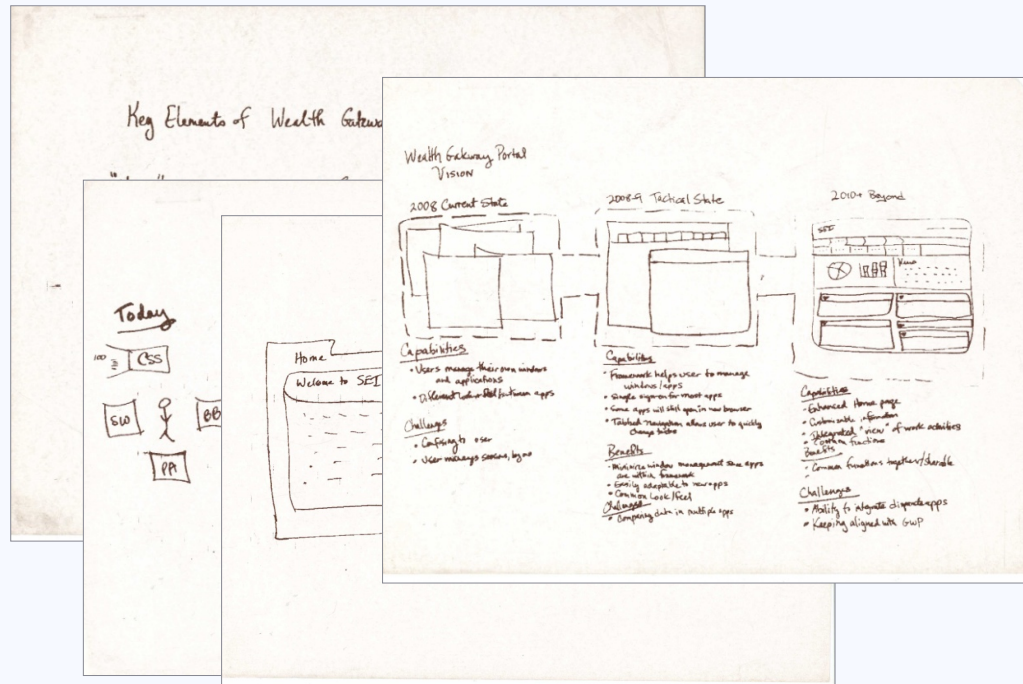 Key Elements of Wealth
Today
100
CSS
SW
BB
PPI
Home
Welcome to SEI
Wealth Gateway Portal
Vision
2008 Current State
Capabilities
• Users manage their own windows
and applications
• Different between apps
Challenges
• Confusing to user
• User manages sessions,
2008-9 Tactical State
Capabilities
• Framework helps user to manage
windows/apps
• Single sign-on for most apps
• Some apps will still open in new browser
• Tabbed Navigation allows user to quickly
change
Benefits
• Minimize window management since apps
are within framework
• Easily adaptable to new apps
• Common Look/Feel
Challenges
• Comparing data in multiple apps
2010+ Beyond
SEI
Capabilities
• Enhanced Home page
• Customizable information
• Integrated "view" of work activities
• Common functions
Benefits
• Common functions together/sharable
Challenges
• Ability to integrate disparate apps
• Keeping aligned with GWP